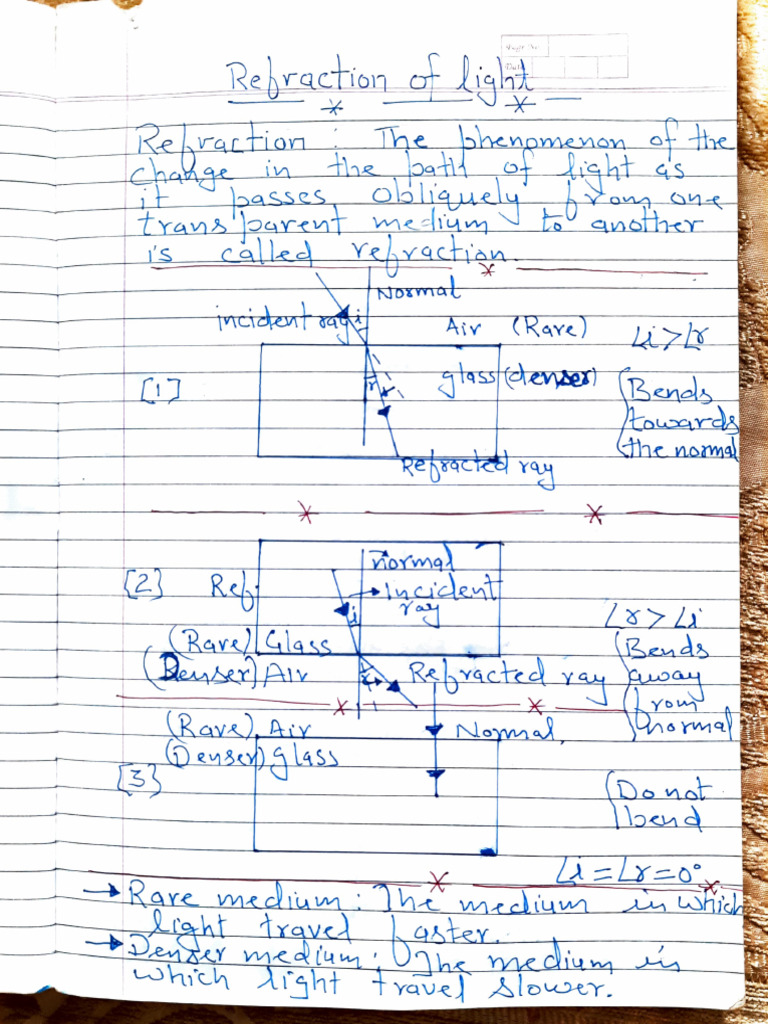 Refraction of light
Refraction : The phenomenon of the
change in the path of light as
it passes obliquely from one
transparent medium to another
is called refraction.
Normal
incident ray i
Air (Rare)
∠i>∠r
[1]
r
glass (denser)
Bends
towards
the normal
Refracted ray
[2] Ref
normal
Incident
ray
i
(Rare) Glass
(Denser) Air
r
Refracted ray
∠r>∠i
Bends
away
from
normal
(Rare) Air
Normal,
(Denser) glass
[3]
Do not
bend
∠i=∠r=0°
→ Rare medium : The medium in which
light travel faster.
→ Denser medium : The medium in
which light travel slower.